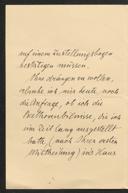 auf einem Zustellungsbogen
bestätigen müssen.
Ohne drängen zu wollen,
erlaube ich mir heute noch
die Anfrage, ob ich die
Beethovenbüste, die ich
im Zeit lang ausgestellt
hatte, (nach Ihrer ersten
Mittheilung) ins Haus